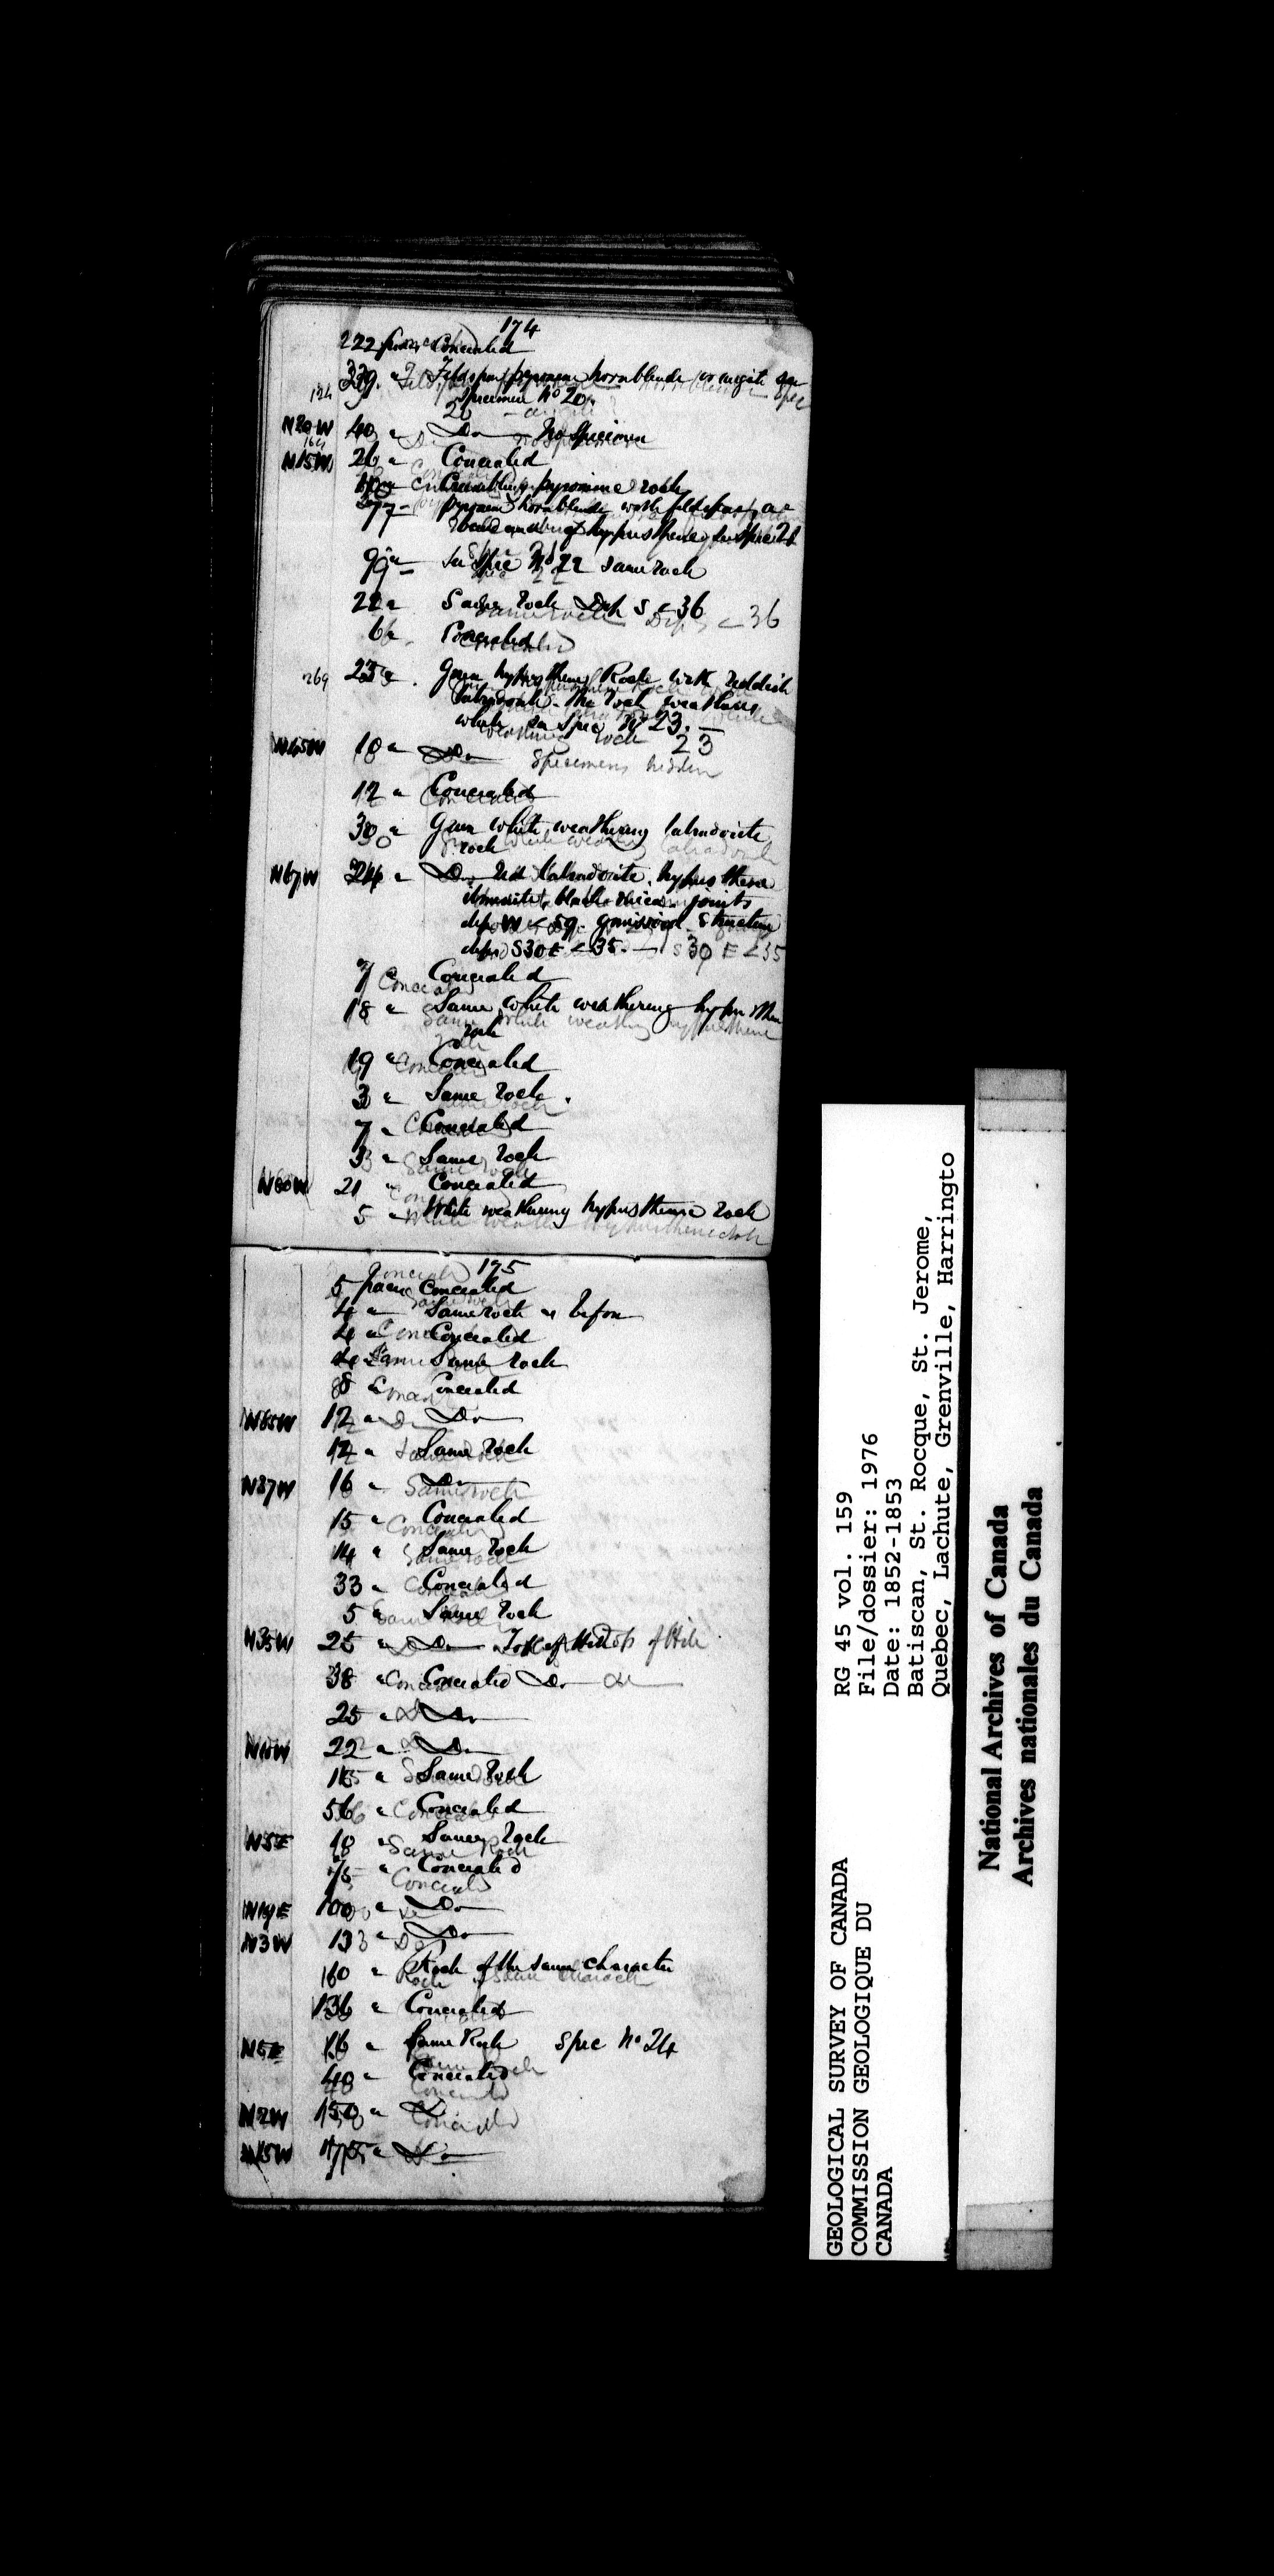 174
222 paces Concealed
339 " Feldspar pyroxene hornblende or augite see
124
Specimen No 20.
N20W 40 " Do No Specimen
N15W 26 " Concealed
10 " Crumbling pyroxene rock
77 " pyroxene hornblende with feldspar, a
band of hypersthene see spec 21
99 " See Spec No 22 same rock
22 " Same rock Dip S < 36
6 " Concealed
269 23 " Green hypersthene Rock with reddish
labradorite. The rock weathers
white see Spec No 23.
N65W 18 " Do Specimens hidden
12 " Concealed
30 " Green white weathering labradorite
rock
N67W 24 " Do Red labradorite, hypersthene
ilmenite, black mica. joints
dip W < 59. gneissoid structure
dips S30E < 35.
7 Concealed
18 " Same white weathering hypersthene
rock
19 " Concealed
3 " Same rock.
7 " Concealed
3 " Same rock
N60W 21 " Concealed
5 " White weathering hypersthene rock
175
5 paces Concealed
4 " Same rock as before
4 " Concealed
4 " Same rock
8 " Concealed
N85W 12 " Do
12 " Same Rock
N37W 16 " Do
15 " Concealed
14 " Same Rock
33 " Concealed
5 " Same Rock
N35W 25 " Do Top of Hill
38 " Concealed Do
25 " Do
N10W 22 " Do
15 " Same Rock
56 " Concealed
N5E 18 " Same Rock
75 " Concealed
N19E 100 " Do
N3W 133 " Do
160 " Rock of the same character
136 " Concealed
N5E 16 " Same Rock Spec No 24
40 " Concealed
N2W 150 " Do
N15W 175 " Do
GEOLOGICAL SURVEY OF CANADA
COMMISSION GEOLOGIQUE DU
CANADA
RG 45 vol. 159
File/dossier: 1976
Date: 1852-1853
Batiscan, St. Rocque, St. Jerome,
Quebec, Lachute, Grenville, Harringto
National Archives of Canada
Archives nationales du Canada